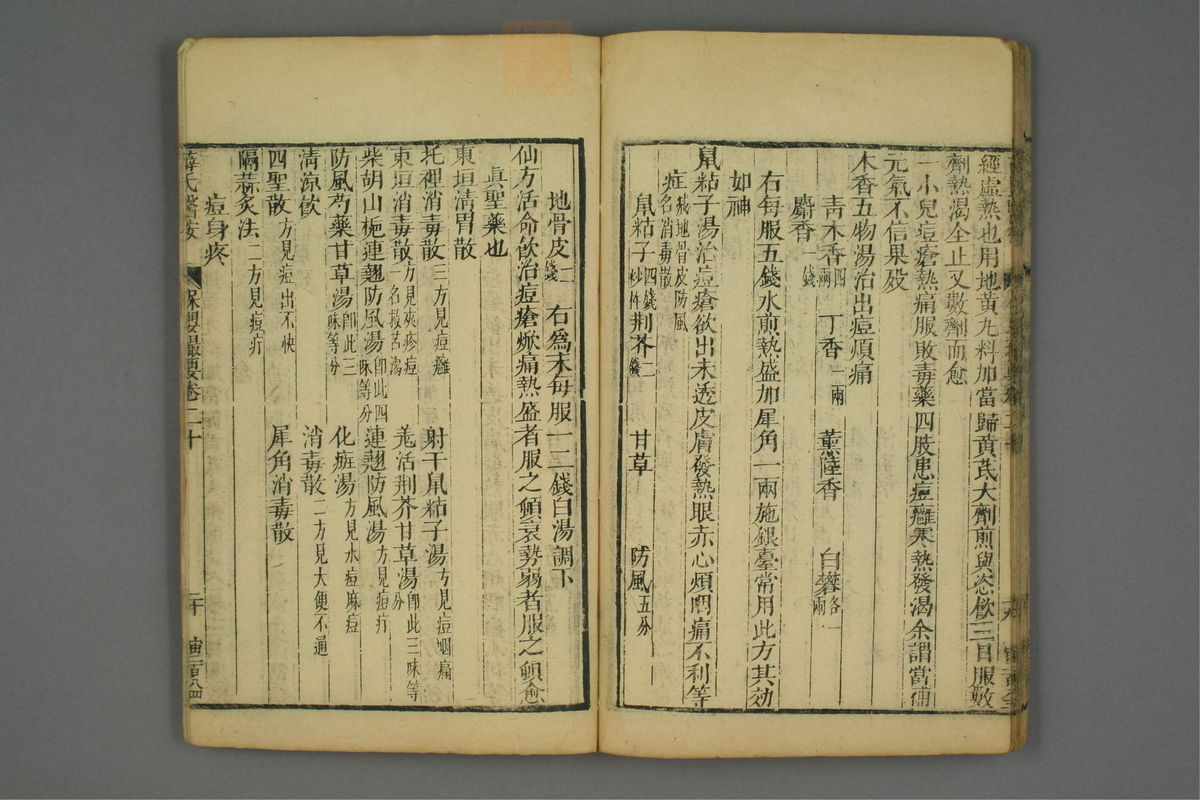 經虛熱也用地黄九料加當歸黄芪大劑煎與恣飲三日服數
劑熱渴全止又數劑而愈
一小兒痘瘡熱痛服敗毒藥四肢患痘癰寒熱發渴余謂當補
元氣不信果歿
木香五物湯治出痘煩痛
靑木香四兩 丁香一兩 薰陸香 白礬各一兩
麝香一錢
右每服五錢水煎熱盛加犀角一兩施銀臺常用此方其効
如神
鼠粘子湯治痘瘡欲出未透皮膚發熱眼赤心煩咽痛不利等
症一名消毒散
鼠粘子四錢炒杵 荆芥二錢 甘草 防風五分
地骨皮二錢 右爲末每服一二錢白湯調下
仙方活命飮治痘瘡焮痛熱盛者服之頓衰勢弱者服之頓愈
眞聖藥也
東垣淸胃散
托裡消毒散三方見痘癰 射干鼠粘子湯方見痘咽痛
東垣消毒散方見夾疹痘一名救苦湯 羗活荆芥甘草湯卽此三味等分
柴胡山梔連翹防風湯卽此四味等分 連翹防風湯方見痘疔
防風芍藥甘草湯卽此三味等分 化斑湯方見水痘麻痘
淸凉飮 消毒散一方見大便不通
四聖散方見痘出不快 犀角消毒散
隔蒜灸法二方見痘疔
痘身疼
薛氏醫按 保嬰撮要卷二十 二十